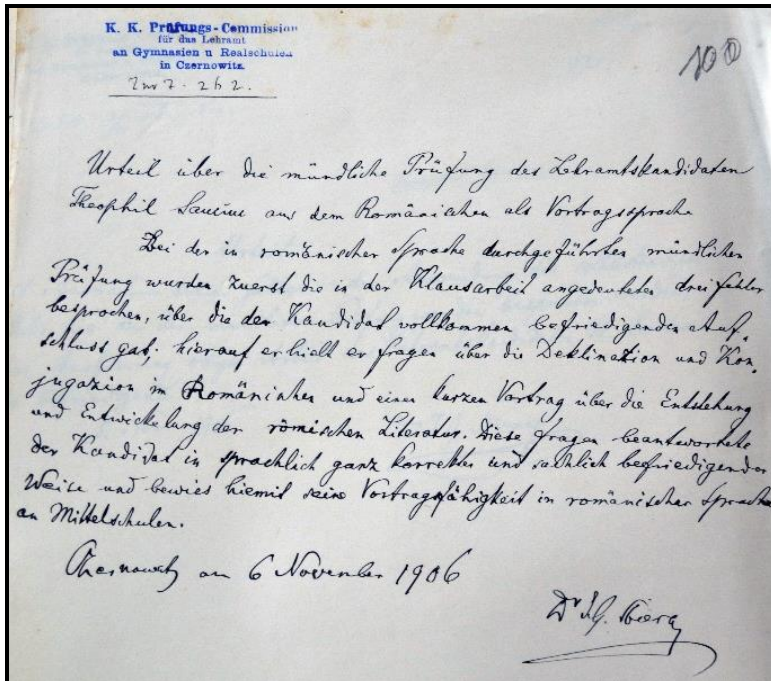 K. K. Prüfungs-Commission
für das Lehramt
an Gymnasien u Realschulen
in Czernowitz
Zur Z. 262.
100
Urteil über die mündliche Prüfung des Lehramtskandidaten
Theophil Sauciuc aus dem Romänischen als Vortragssprache
Bei der in romänischer Sprache durchgeführten mündlichen
Prüfung wurden zuerst die in der Klausarbeit angedeuteten drei Fehler
besprochen, über die der Kandidat vollkommen befriedigenden Auf-
schluss gab; hierauf erhielt er Fragen über die Deklination und Kon-
jugazion im Romänischen und einen kurzen Vortrag über die Entstehung
und Entwickelung der römischen Literatur. Diese Fragen beantwortete
der Kandidat in sprachlich ganz korrekter und sachlich befriedigender
Weise und bewies hiemit seine Vortragsfähigkeit in romänischer Sprache
an Mittelschulen.
Czernowitz am 6 November 1906
Dr I. G. Sbiera